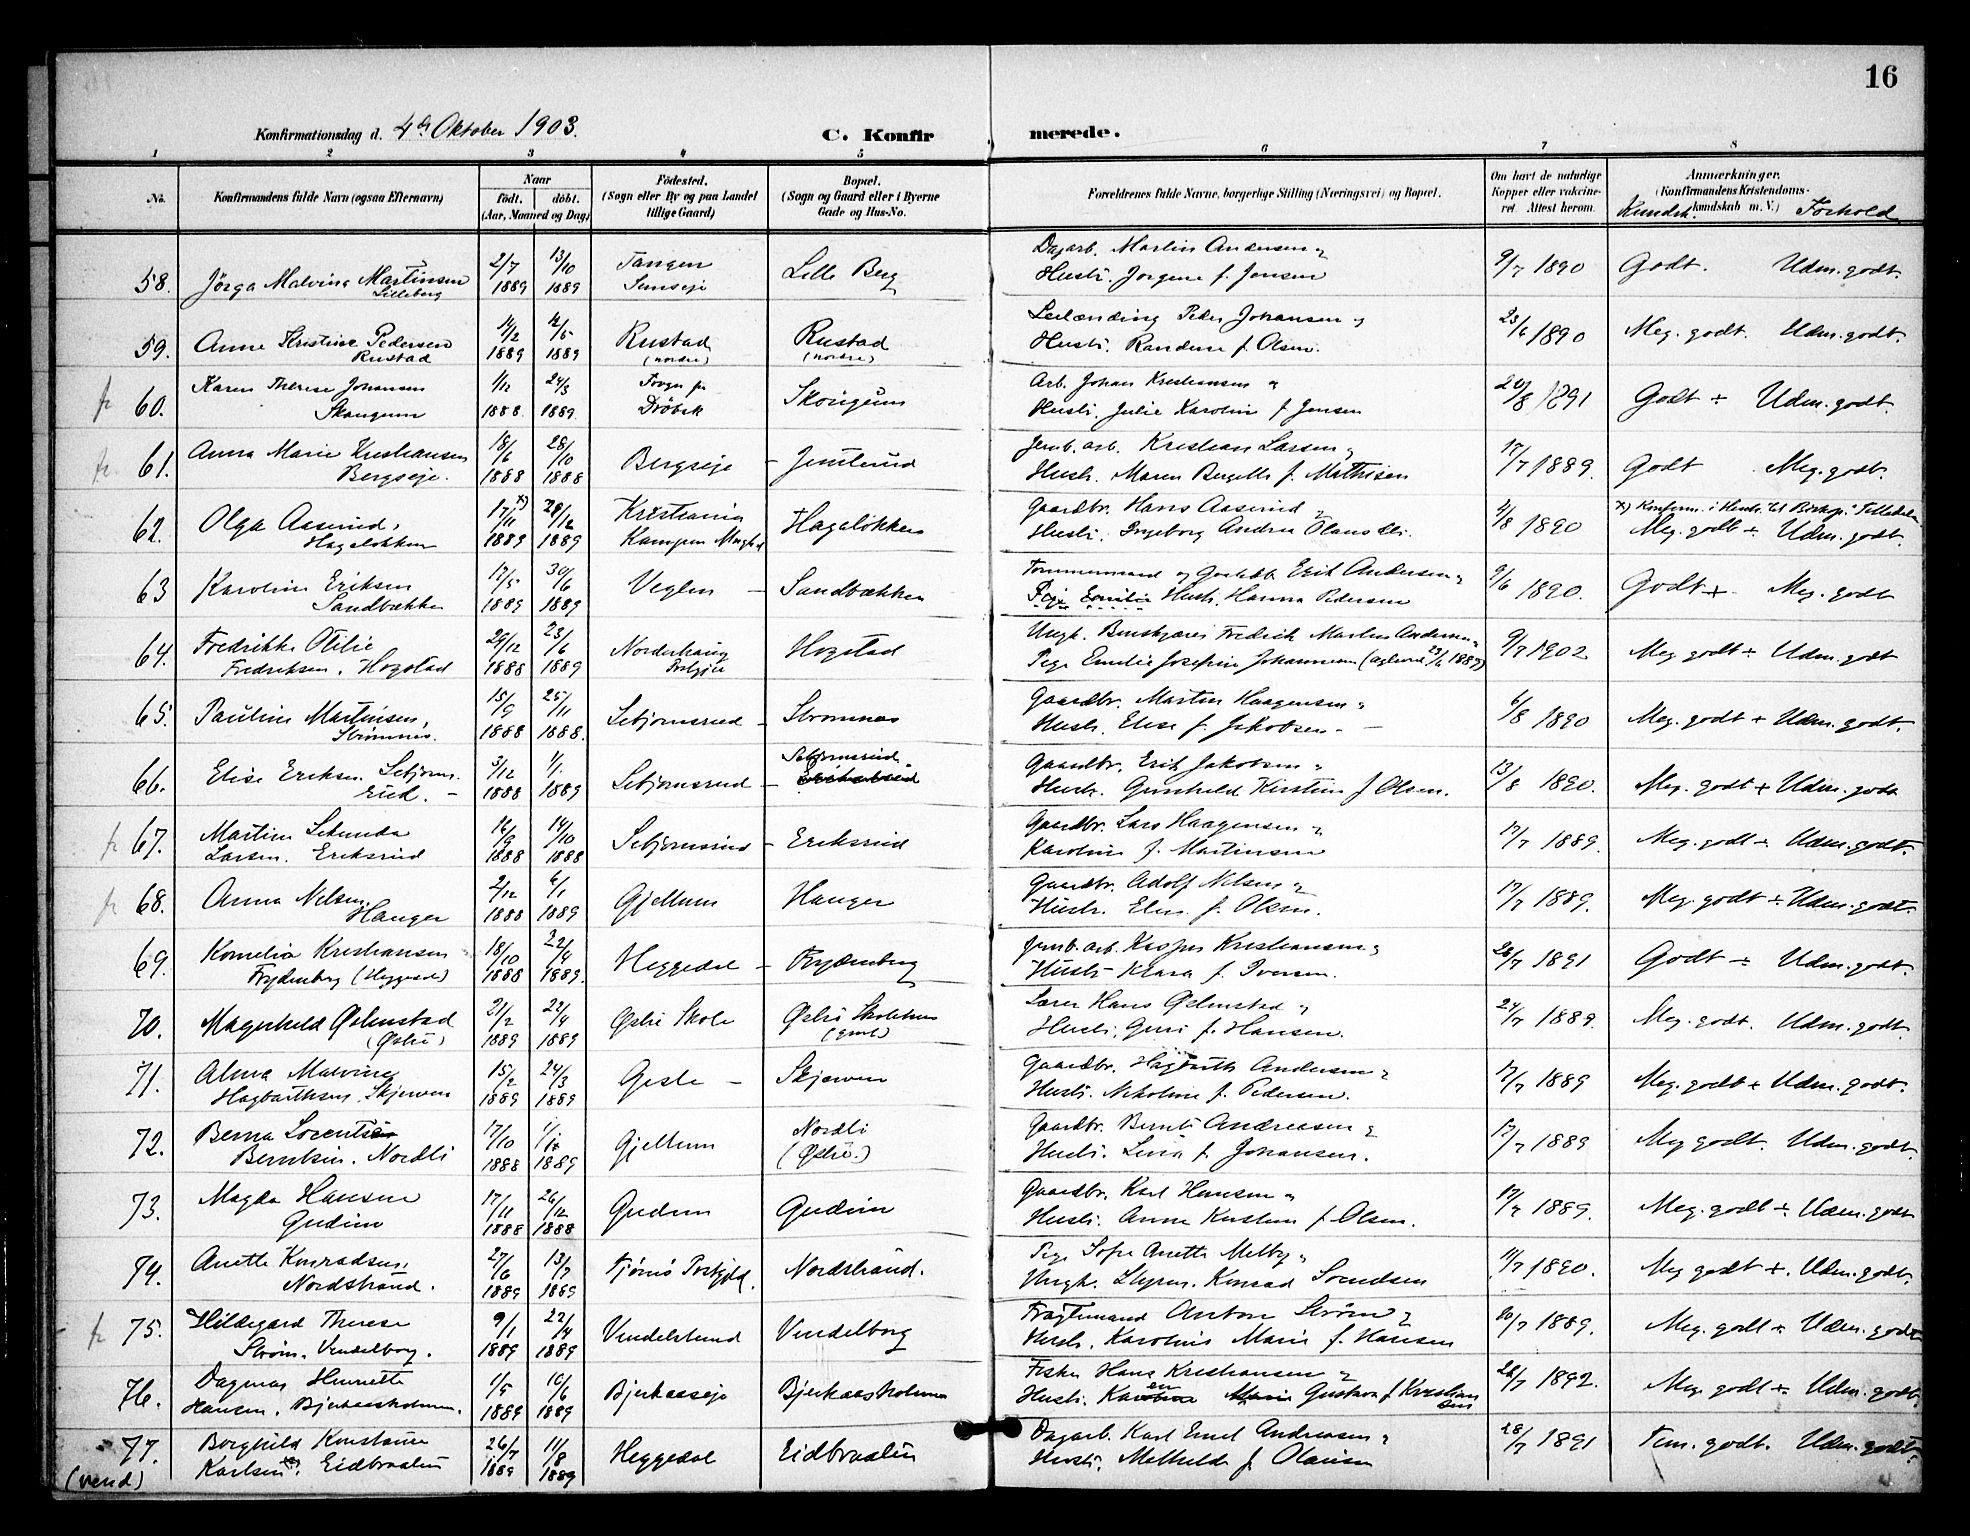 16
Konfirmationsdag d. 4de Oktober 1903.
C. Konfirmerede.
1 2 3 4 5 6 7 8
No. Konfirmandens fulde Navn (ogsaa Efternavn) Naar født. døbt. (Aar, Maaned og Dag) Fødested. (Sogn eller By og paa Landet tillige Gaard) Bopæl. (Sogn og Gaard eller i Byerne Gade og Hus-No. Forældrenes fulde Navne, borgerlige Stilling (Næringsvei) og Bopæl. Om havt de naturlige Kopper eller vakcineret. Attest herom. Anmærkninger. (Konfirmandens Kristendomskundskab m. V.) Kundsk. Forhold
58. Jörga Malvina Martinsen Lilleberg 2/7 1889 13/10 1889 Tangen Lille Berg Dagarb. Martin Andersen & Hustr. Jorgine f. Jensen 9/7 1890 Godt. Udm. godt.
59. Anne Kristine Pedersen Rustad 14/2 1889 12/5 1889 Rustad (nordre) Rustad (nordre) Leilænding Peder Johansen & Hustr. Randine f. Olsen. 23/6 1890 Meg. godt. Udm. godt.
fr 60. Karen Therese Johansen Skaugum 1/12 1888. 24/3 1889. Dröbak Skaugum Arb. Johan Kristiansen & Hustr. Julie Karolin f. Jensen 20/8 1891 Godt ÷ Udm. godt.
fr 61. Anna Marie Kristiansen Bergseje. 18/6 1888 28/10 1888 Bergseje – Jutlerud Jernb. arb. Kristian Larsen & Hustr. Maren Bergitte f. Mathisen 17/7 1889. Godt Meg. godt.
62. Olga Aaserud, Hagaløkken 17/11 x) 1889 28/12 1889 Kristiania Kampen Hagaløkken Gaardbr. Hans Aaserud & Hustr. Ingeborg Andrea Olausdtr. 4/8 1890 x) Konfirm. i Henh. til Biskop. Tilladelse Meg. godt ÷ Udm. godt.
63 Karoline Eriksen Sandbækken 17/5 1889 30/6 1889 Veglen – Sandbækken Tømmermand og Erik Andersen & Pige Emilie Hustr. Hanna Pedersen 9/6 1890. Godt + Meg. godt
64. Fredrikke Otilie Fredriksen, Hogstad 29/12 1888 23/6 1889 Norderhaug Prstgjld Hogstad Ungk. Fredrik Martin Andersen & Pige Emilie Josefine Johannesen 9/7 1902 Meg godt ÷ Udm. godt
65. Pauline Martinsen, Strömnes. 15/9 1888 25/11 1888. Sebjørnsrud – Strömnes Gaardbr. Martin Haagensen & Hustr. Elise f. Jakobsen – 6/8 1890 Meg. godt + Udm. godt.
66. Elise Eriksen. Sebjørnsrud. – 3/12 1888 1/1 1889 Sebjørnsrud – Sebjørnsrud. Gaardbr. Erik Jakobsen & Hustr. Gunhild Kirstine f Olsen. 13/8 1890. Meg. godt + Udm. godt
fr 67. Martine Sekunda Larsen. Eriksrud 16/9 1888 14/10 1888 Sebjørnsrud – Eriksrud Gaardbr. Lars Haagensen & Karoline f. Martinsen 17/7 1889. Meg. godt ÷ Udm. godt.
fr 68. Anna Nilsen Hauger 2/12 1888 6/1 1889 Gjellum Hauger Gaardbr. Adolf Nilsen & Hustr. Elen f. Olsen. 17/7 1889. Meg. godt ÷ Udm. godt.
69. Kornelia Kristiansen Frydenberg (Heggedal) 18/10 1888 22/4 1889. Heggedal – Frydenberg Jernb. arb. Kasper Kristiansen & Hustr Klara f. Iversen. 26/7 1891 Godt ÷ Udm. godt.
70. Magnhild Gelmstad (Østre) 21/2 1889 22/4 1889 Østre Skole Østre Skolehus (gml) Lærer Hans Gelmstad & Hustr. Guri f. Hansen. 24/7 1889. Meg. godt. Udm. godt
71. Alma Malvine Hagbarthsen, Skjerven 15/2 1889 24/3 1889 Gisle – Skjerven Gaardbr. Hagbarth Andersen & Hustr. Nikoline f. Pedersen. 17/7 1889 Meg. godt + Udm. godt.
72. Berna Lorentse Berntsen. Nordli 17/10 1888 1/1 1889 Gjellum Nordli (Østre.) Gaardbr. Bernt Andreasen & Hustr. Lina f. Johansen. 17/7 1889 Meg godt. Udm. godt.
73. Magda Hansen Gudim 17/11 1888 26/12 1888 Gudim Gudim Gaardbr. Karl Hansen & Hustr. Anne Kirstine f. Olsen. 17/7 1889. Meg. godt ÷ Udm. godt
74. Anette Konradsen, Nordstrand. 27/6 1889 13/7 1889 Tjömö Prstgjld. Nordstrand. Pige Sofie Anette Melby & Ungk. Styrm. Konrad 11/7 1890. Meg godt +. Udm. godt.
fr 75. Hildegard Therese Ström. Vendelborg. 9/1 1889 22/4 1889 Vendelsund Vendelborg Fragtemand Anton Ström & Hustr. Karoline Marie f. Hansen 20/7 1889. Meg. godt ÷ Udm. godt
76. Dagmar Henriette Hansen. Bjerkaasholmen. 1/5 1889 10/6 1889 Bjerkaaseje Bjerkaasholmen Fisker Hans Kristiansen & Hustr. Karen Gustava f Kristiansen 22/7 1892. Meg. godt ÷. Udm. godt.
77. Borghild Konstanse Karlsen. Eidbraaten 26/7 1889 11/8 1889 Heggedal Eidbraaten Dagarb. Karl Emil Andreasen & Hustr. Mathilde f. Olausen 28/7 1891 Tem. godt. Udm. godt.
(vend)